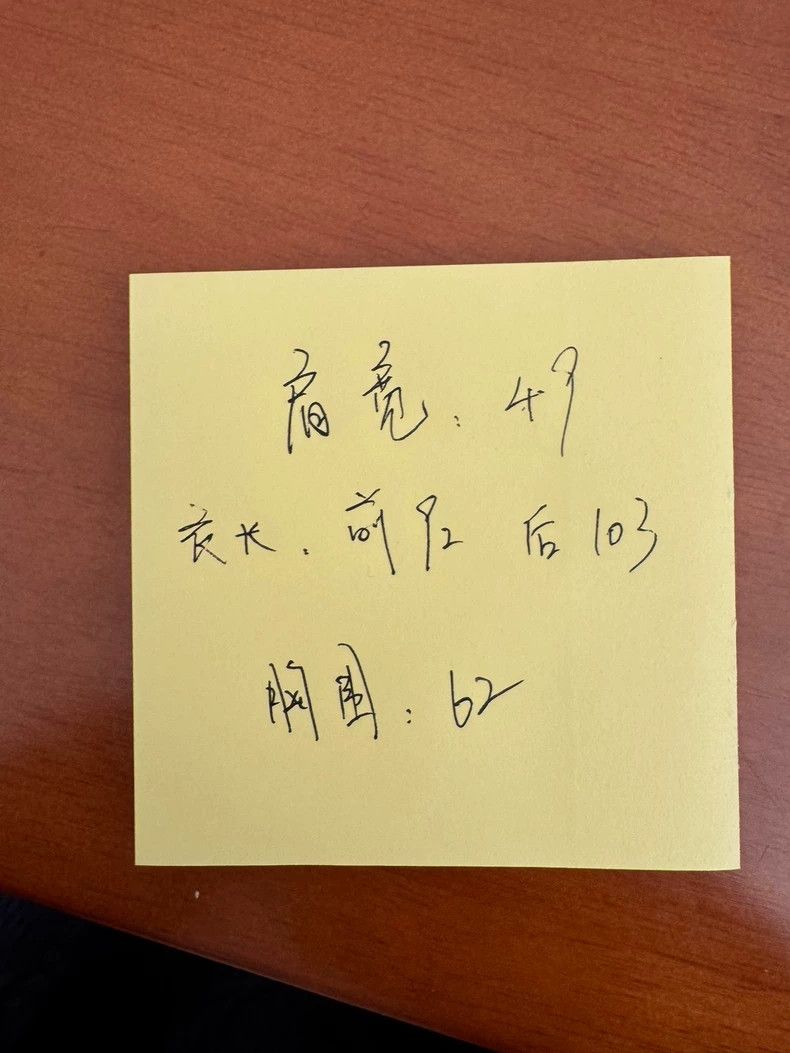 肩宽：49
衣长：前92 后103
胸围：62